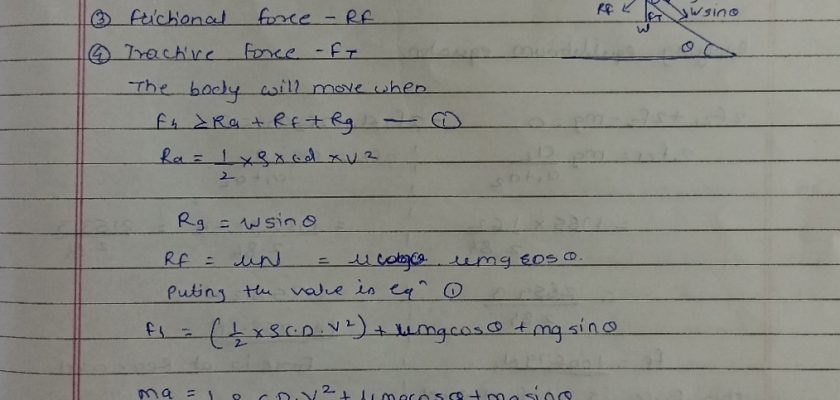 ③ frictional force - RF
RF wsinθ
FT
W
④ Tractive Force - FT
θ
The body will move when
Ft ≥ Ra + Rf + Rg — ①
Ra = 1/2 x ρ x cd x v²
Rg = wsinθ
Rf = μN = μmg cosθ.
Puting the value in eqⁿ ①
Ft = (1/2 x ρ C.D. V²) + μmgcosθ + mgsinθ
ma = 1 ρ CD. V² + μmgcosθ + mgsinθ